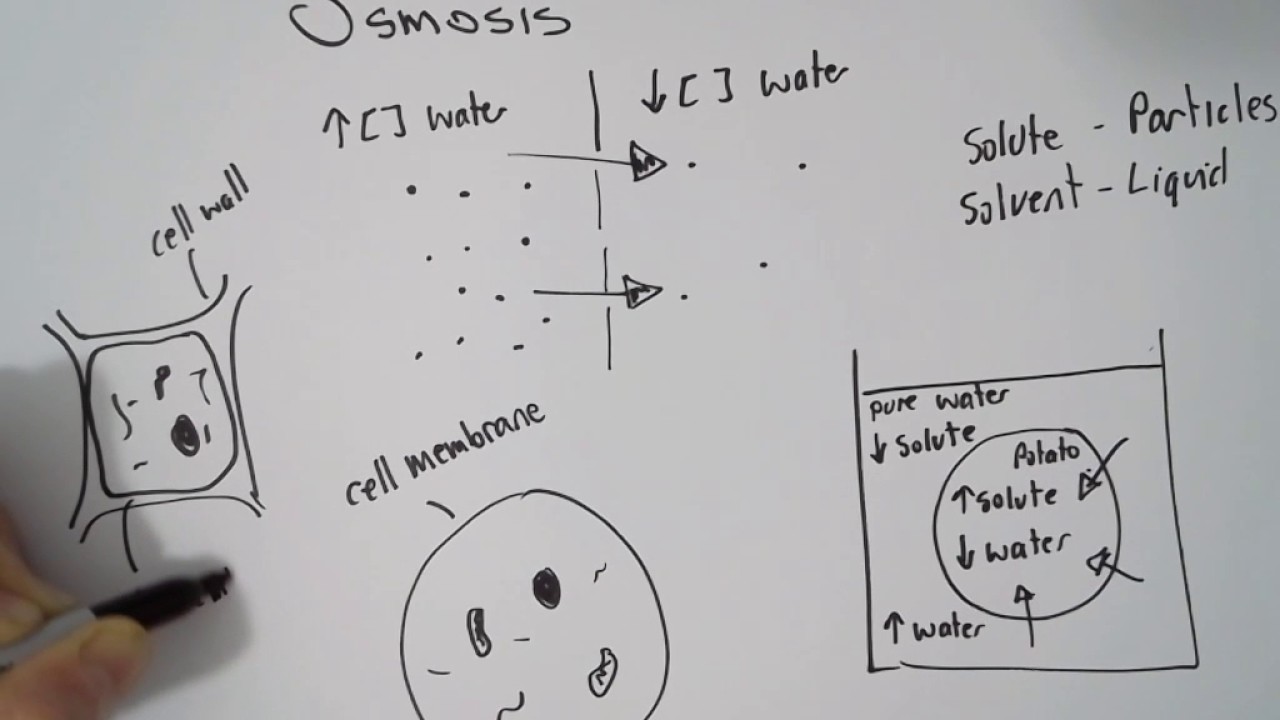 Osmosis
↑ [ ] water
↓ [ ] water
Solute - Particles
Solvent - Liquid
cell wall
cell membrane
pure water
↓ solute
Potato
↑ solute
↓ water
↑ water